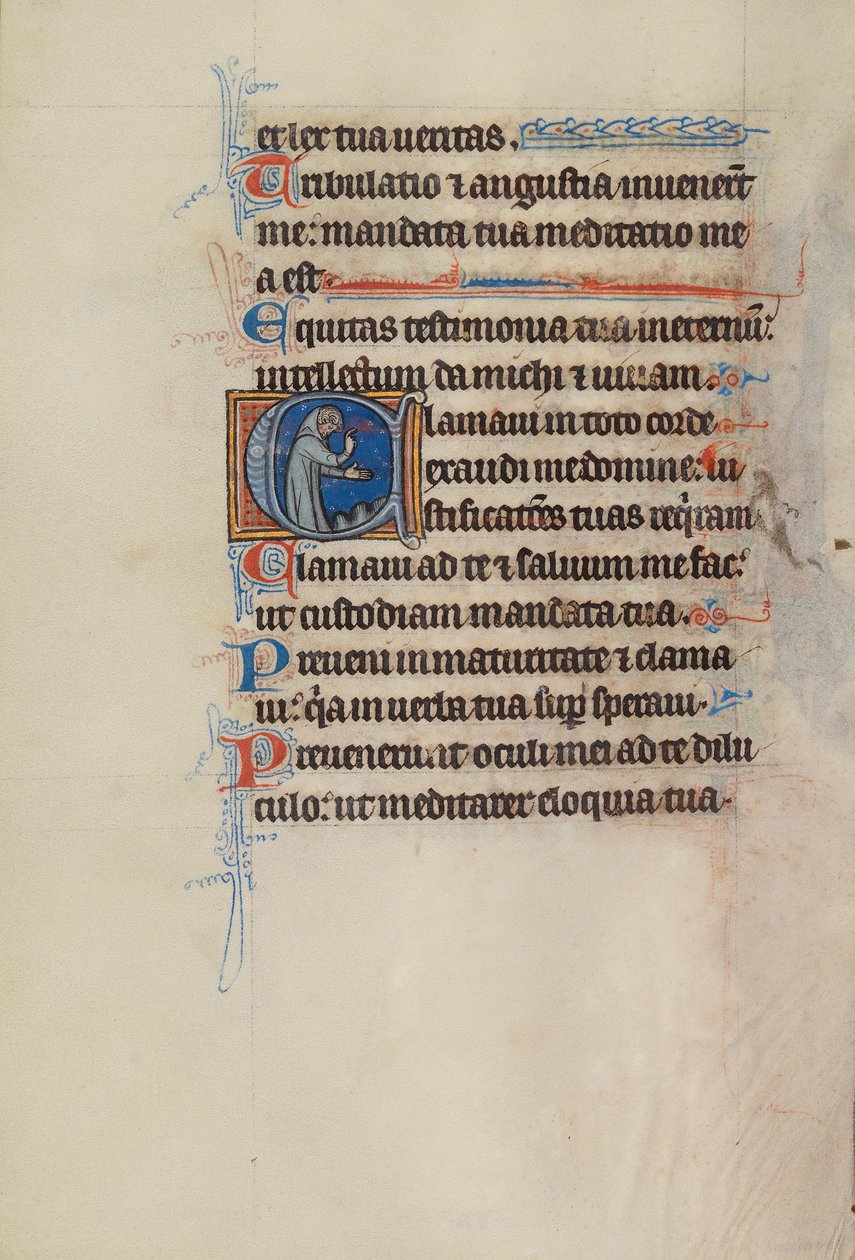 et lex tua ueritas.
Tribulatio ⁊ angustia inuener̄t
me: mandata tua meditatio me
a est.
Equitas testimonia tua in eternū:
intellectum da michi ⁊ uiuam.
Clamaui in toto corde
exaudi me domine: iu
stificatōes tuas reqͥram
Clamaui ad te ⁊ saluum me fac:
ut custodiam mandata tua.
Preueni in maturitate ⁊ clama
ui: qͥa in uerba tua suꝑ speraui.
Preuenerunt oculi mei ad te dilu
culo: ut meditarer eloquia tua.